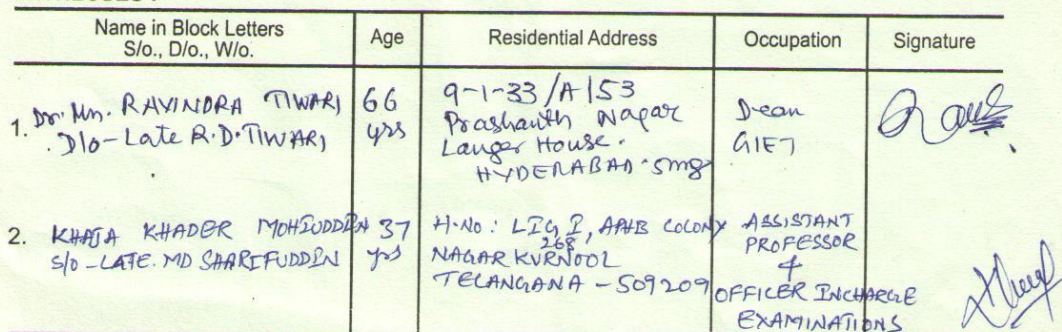 Name in Block Letters
S/o., D/o., W/o.
Age
Residential Address
Occupation
Signature
1. Dr. Mn. RAVINDRA TIWARI
D/o-Late R.D.TIWARI
66
yrs
9-1-33/A/53
Prashanth Nagar
Langer House.
HYDERABAD
Dean
GIET
2. KHAJA KHADER MOHIUDDIN
S/o-LATE. MD SHARIFUDDIN
37
yrs
H.No: LIG I, APHB COLONY
268
NAGAR KURNOOL
TELANGANA - 509209
ASSISTANT
PROFESSOR
&
OFFICER INCHARGE
EXAMINATIONS